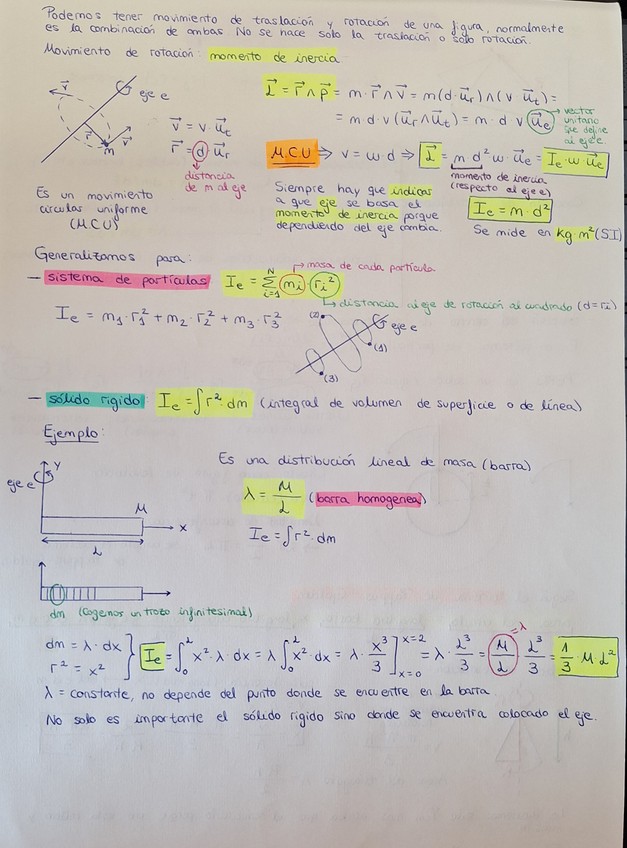 Podemos tener movimiento de traslación y rotación de una figura, normalmente
es la combinación de ambas. No se hace solo la traslación o solo rotación.
Movimiento de rotación: momento de inercia
v⃗
eje e
r⃗
v⃗
m
v⃗ = v · u⃗t
r⃗ = d u⃗r
distancia
de m al eje
Es un movimiento
circular uniforme
(MCU)
L⃗ = r⃗ ∧ p⃗ = m · r⃗ ∧ v⃗ = m(d · u⃗r) ∧ (v · u⃗t) =
= m · d · v (u⃗r ∧ u⃗t) = m · d · v u⃗e
vector
unitario
que define
al eje e.
M.C.U ⇒ v = w · d ⇒ L⃗ = m d² w · u⃗e = Ie · w · u⃗e
momento de inercia
(respecto al eje e)
Siempre hay que indicar
a que eje se basa el
momento de inercia porque
dependiendo del eje cambia.
Ie = m · d²
Se mide en kg·m² (SI)
Generalizamos para:
— sistema de partículas Ie = Σ i=1 N mi · ri²
masa de cada partícula
distancia al eje de rotación al cuadrado (d = ri)
Ie = m1 · r1² + m2 · r2² + m3 · r3²
(2)
eje e
(1)
(3)
— sólido rígido: Ie = ∫ r² · dm (integral de volumen de superficie o de línea)
Ejemplo:
Es una distribución lineal de masa (barra)
eje e
Y
M
x
L
λ = M/L (barra homogénea)
Ie = ∫ r² · dm
dm (Cogemos un trozo infinitesimal)
dm = λ · dx
r² = x²
} Ie = ∫₀ᴸ x² · λ · dx = λ ∫₀ᴸ x² · dx = λ · x³/3 ]x=0 x=2 = λ · L³/3 = M/L · L³/3 = 1/3 · M L²
= λ
λ = constante, no depende del punto donde se encuentre en la barra.
No solo es importante el sólido rígido sino donde se encuentra colocado el eje.